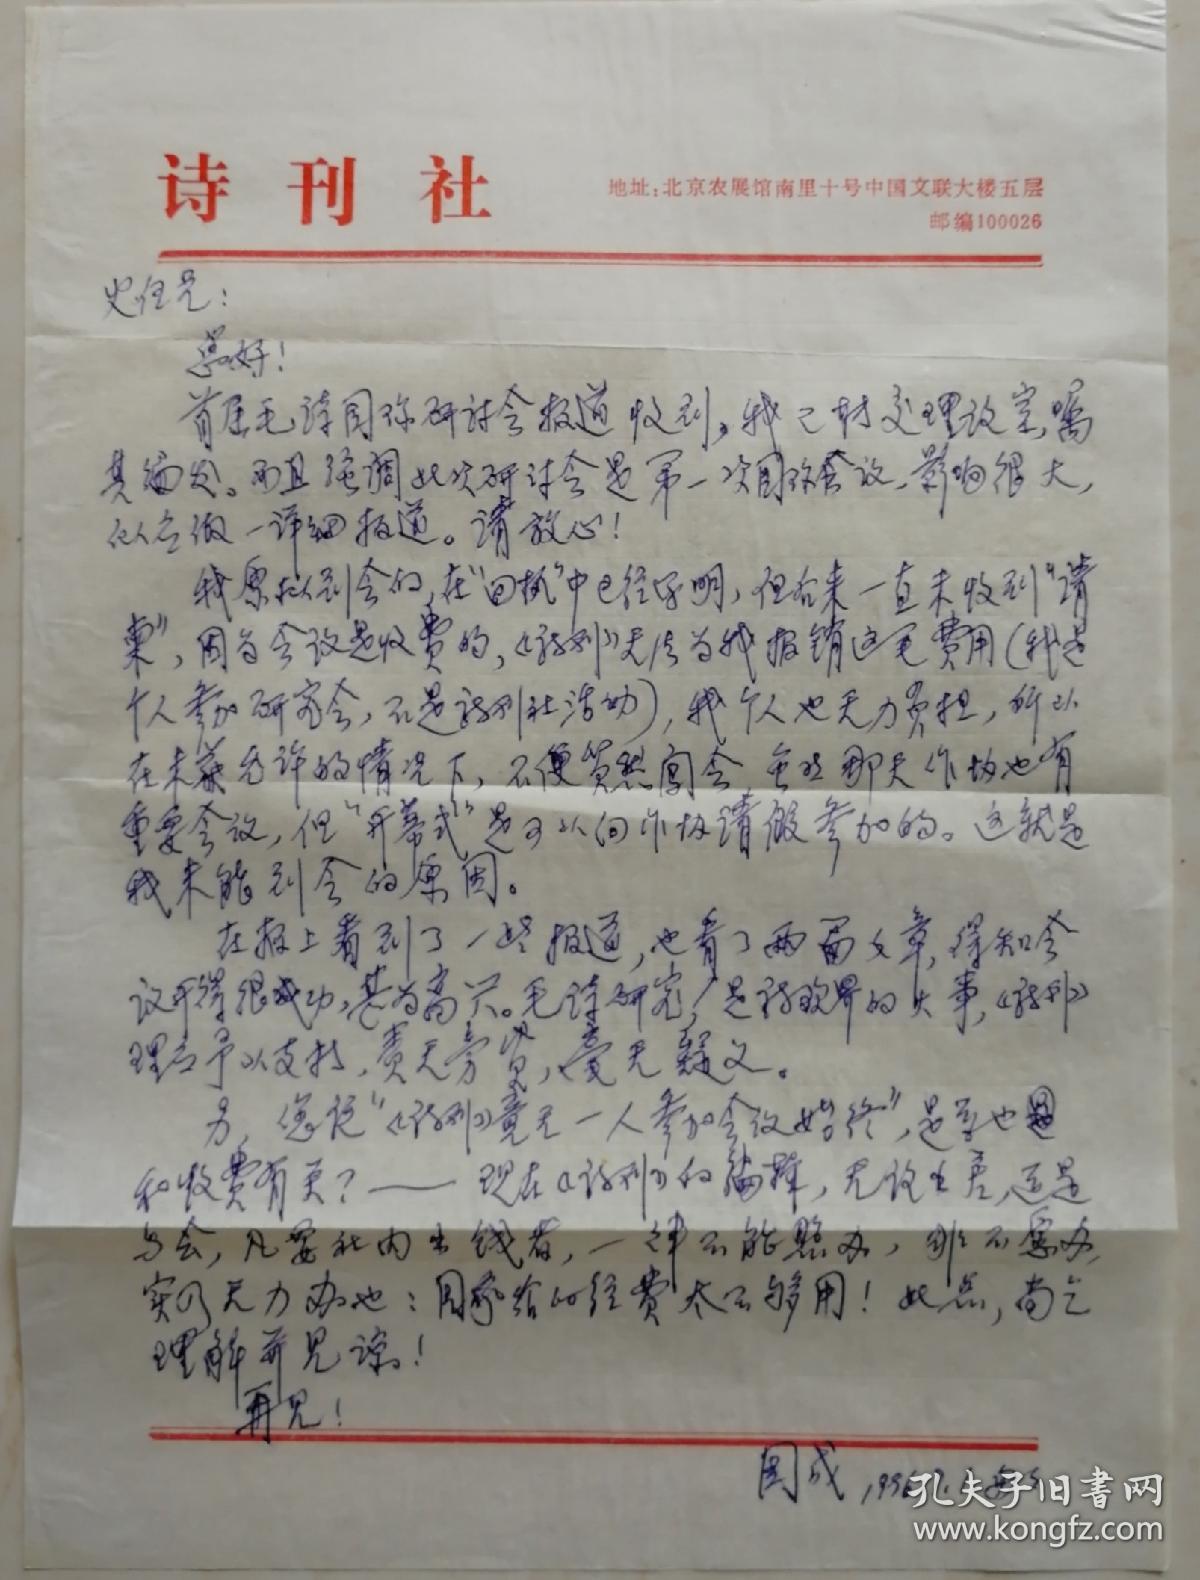 诗刊社
地址:北京农展馆南里十号中国文联大楼五层
邮编100026
兄:
您好!
首届毛诗国际研讨会报道收到,我已转交理改室,嘱
其编发。而且强调此次研讨会是第一次国际会议,影响很大,
似应做一详细报道。请放心!
我原拟到会的,在“回执”中已经写明,但后来一直未收到“请
柬”,因为会议是收费的,《诗刊》无法为我报销这笔费用(我是
个人参加研究会,不是诗刊社活动),我个人也无力负担,所以
在未获允许的情况下,不便贸然闯会。虽然那天作协也有
重要会议,但“开幕式”是可以向作协请假参加的。这就是
我未能到会的原因。
在报上看到了一些报道,也看了两篇文章,得知会
议开得很成功,甚为高兴。毛诗研究,是诗歌界的大事,《诗刊》
理应予以支持,责无旁贷,毫无疑义。
另,您说“《诗刊》竟无一人参加会议始终”,是否也因
和收费有关?——现在《诗刊》的编辑,无论出差,还是
与会,凡要社内出钱者,一律不能照办,非不愿办,
实乃无力办也:国家给的经费太不够用!此点,尚乞
理解并见谅!
再见!
国成,1996.
孔夫子旧书网
www.kongfz.com